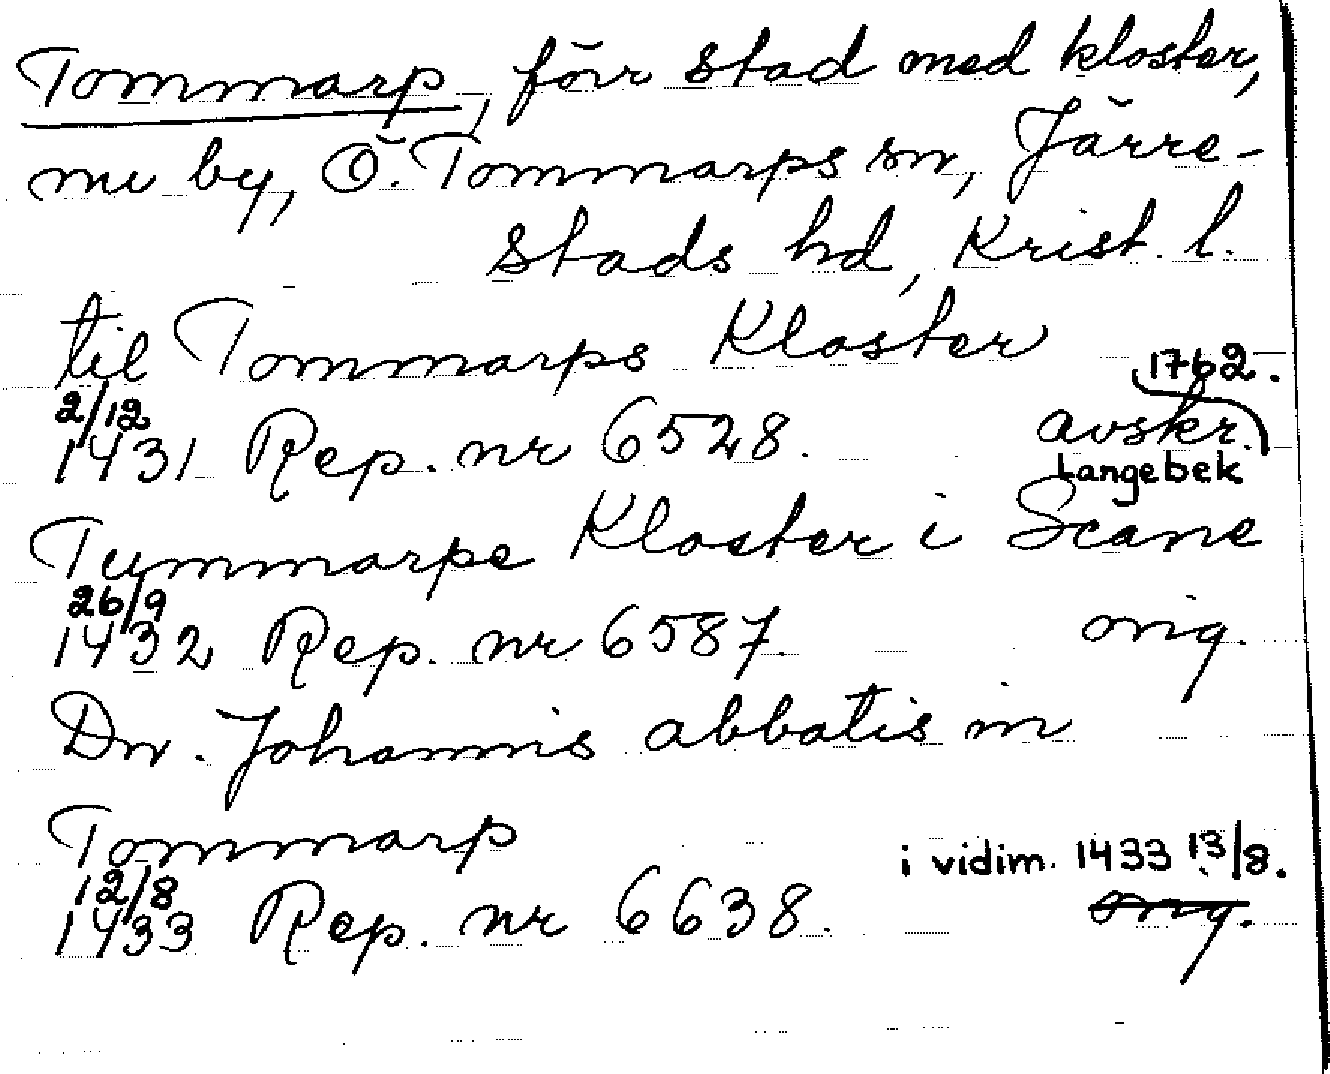 Tommarp, förr stad med kloster,
nu by, Ö. Tommarps sn, Järre-
stads hd, Krist. l.
til Tommarps Kloster
1762.
2/12
1431 Rep. nr 6528. avskr.
Langebek
Tummarpe Kloster i Scane
26/9
1432 Rep. nr 6587. orig.
Dn. Johannis abbatis in
Tommarp
i vidim. 1433 13/8.
12/8
1433 Rep. nr 6638. orig.